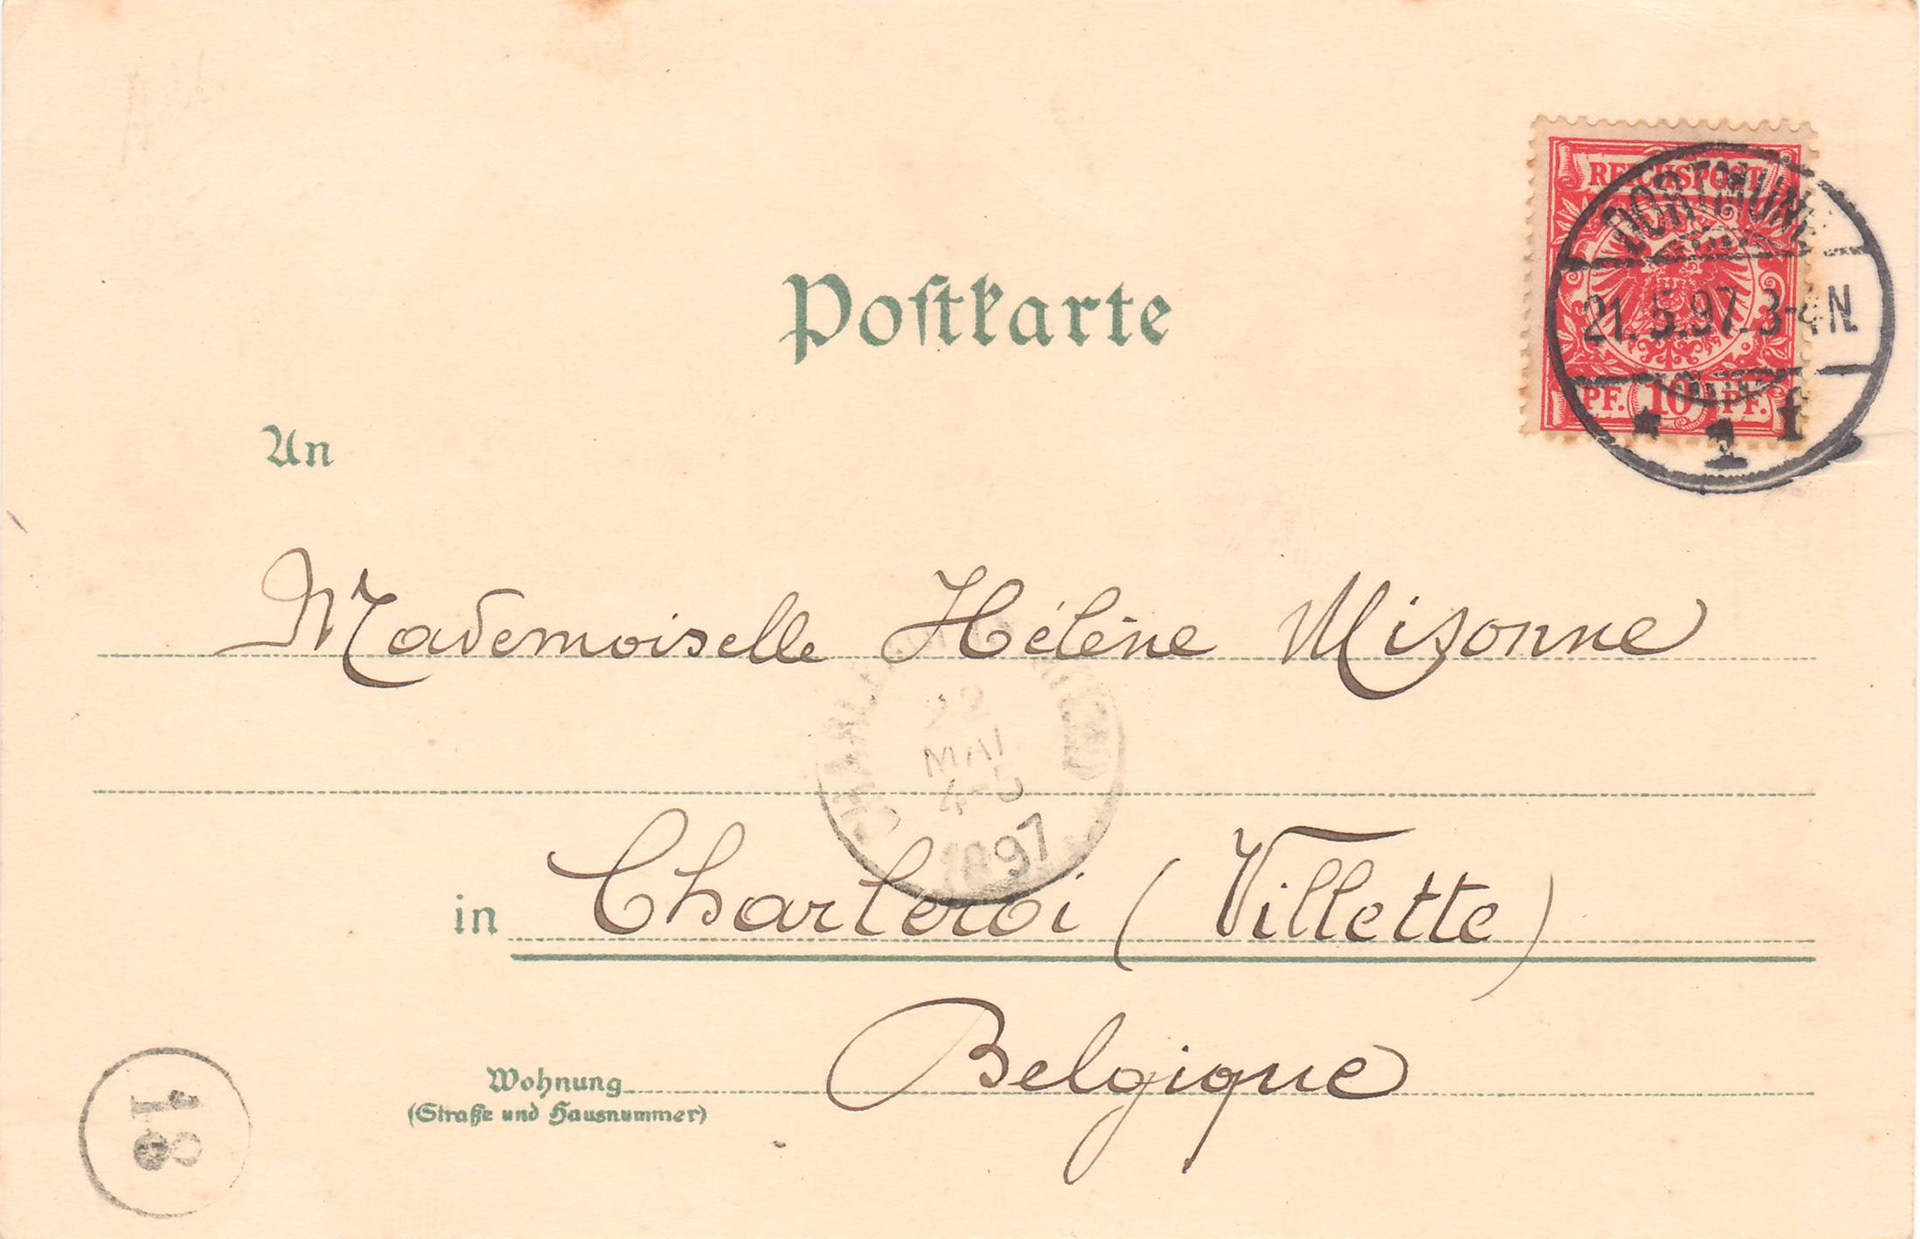 REICHSPOST
DORTMUND
21.5.97.3-4N
PF. 10 PF.
* 1 f
Postkarte
An
Mademoiselle Hélène Misonne
22
MAI
4-5
1897
in Charleroi (Villette)
Belgique
Wohnung
(Straße und Hausnummer)
18